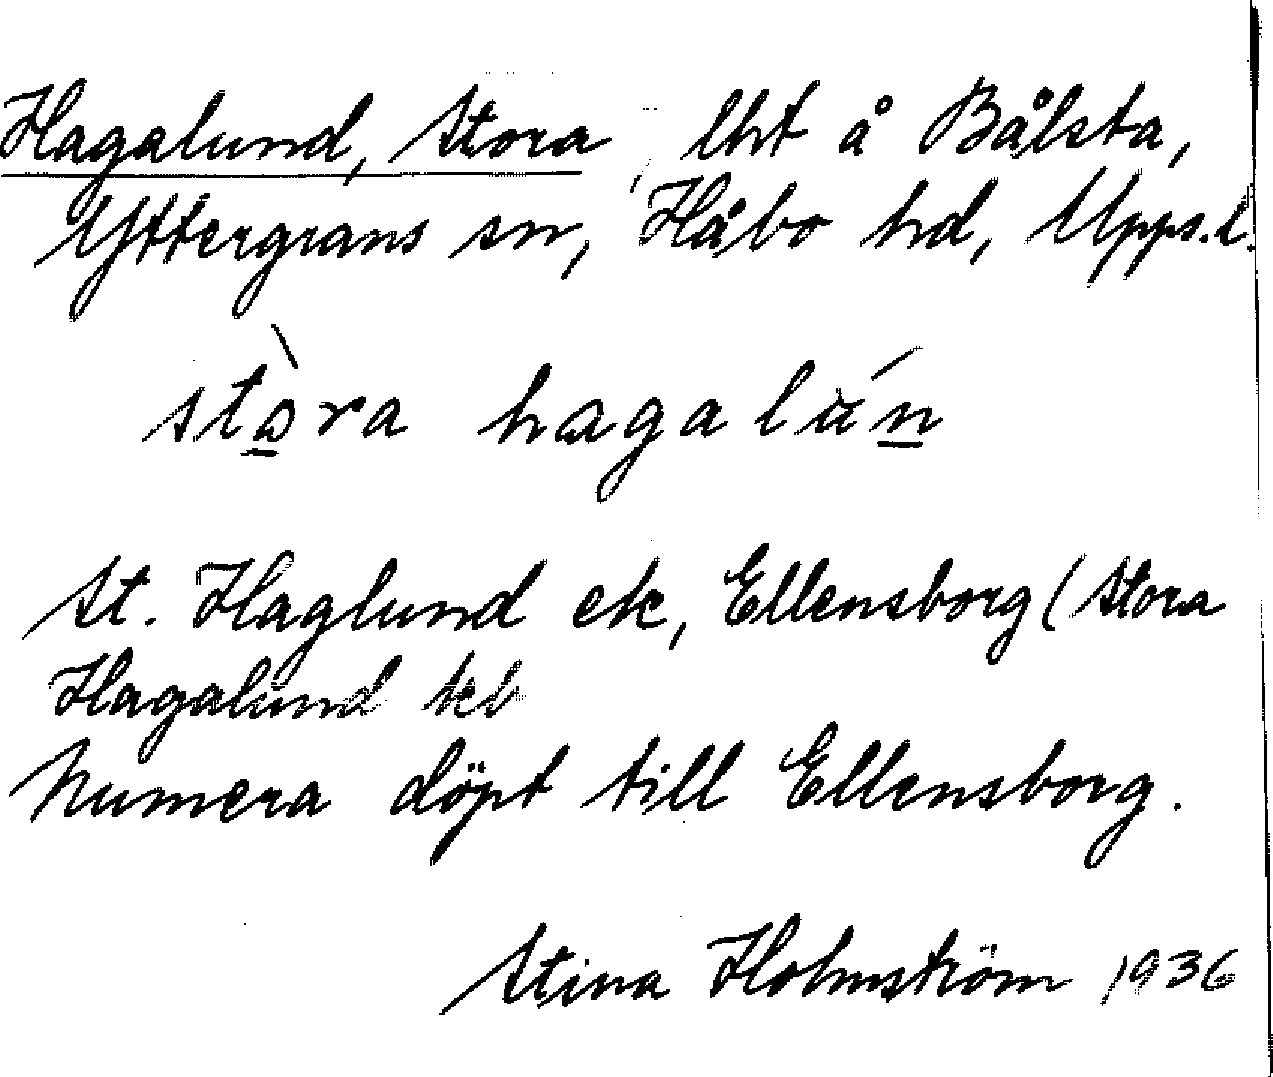 Hagalund, Stora, lht å Bålsta,
Yttergrans sn, Håbo hd, Upps.l.
stò̱ra hagalúṉ
St. Haglund ek, Ellensborg (Stora
Hagalund kb
Numera döpt till Ellensborg.
Stina Holmström 1936